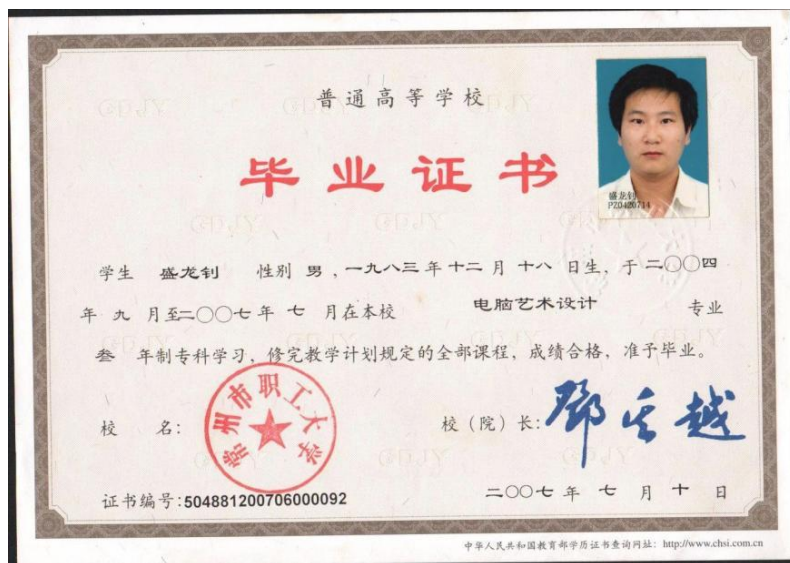 普通高等学校
毕业证书
盛龙钊
PZ0420714
学生 盛龙钊 性别 男，一九八三年十二月十八日生，于二〇〇四
年九月至二〇〇七年七月在本校 电脑艺术设计 专业
叁 年制专科学习，修完教学计划规定的全部课程，成绩合格，准予毕业。
校 名：
常州市职工大学
校（院）长：
证书编号:504881200706000092
二〇〇七年七月十日
中华人民共和国教育部学历证书查询网址：http://www.chsi.com.cn